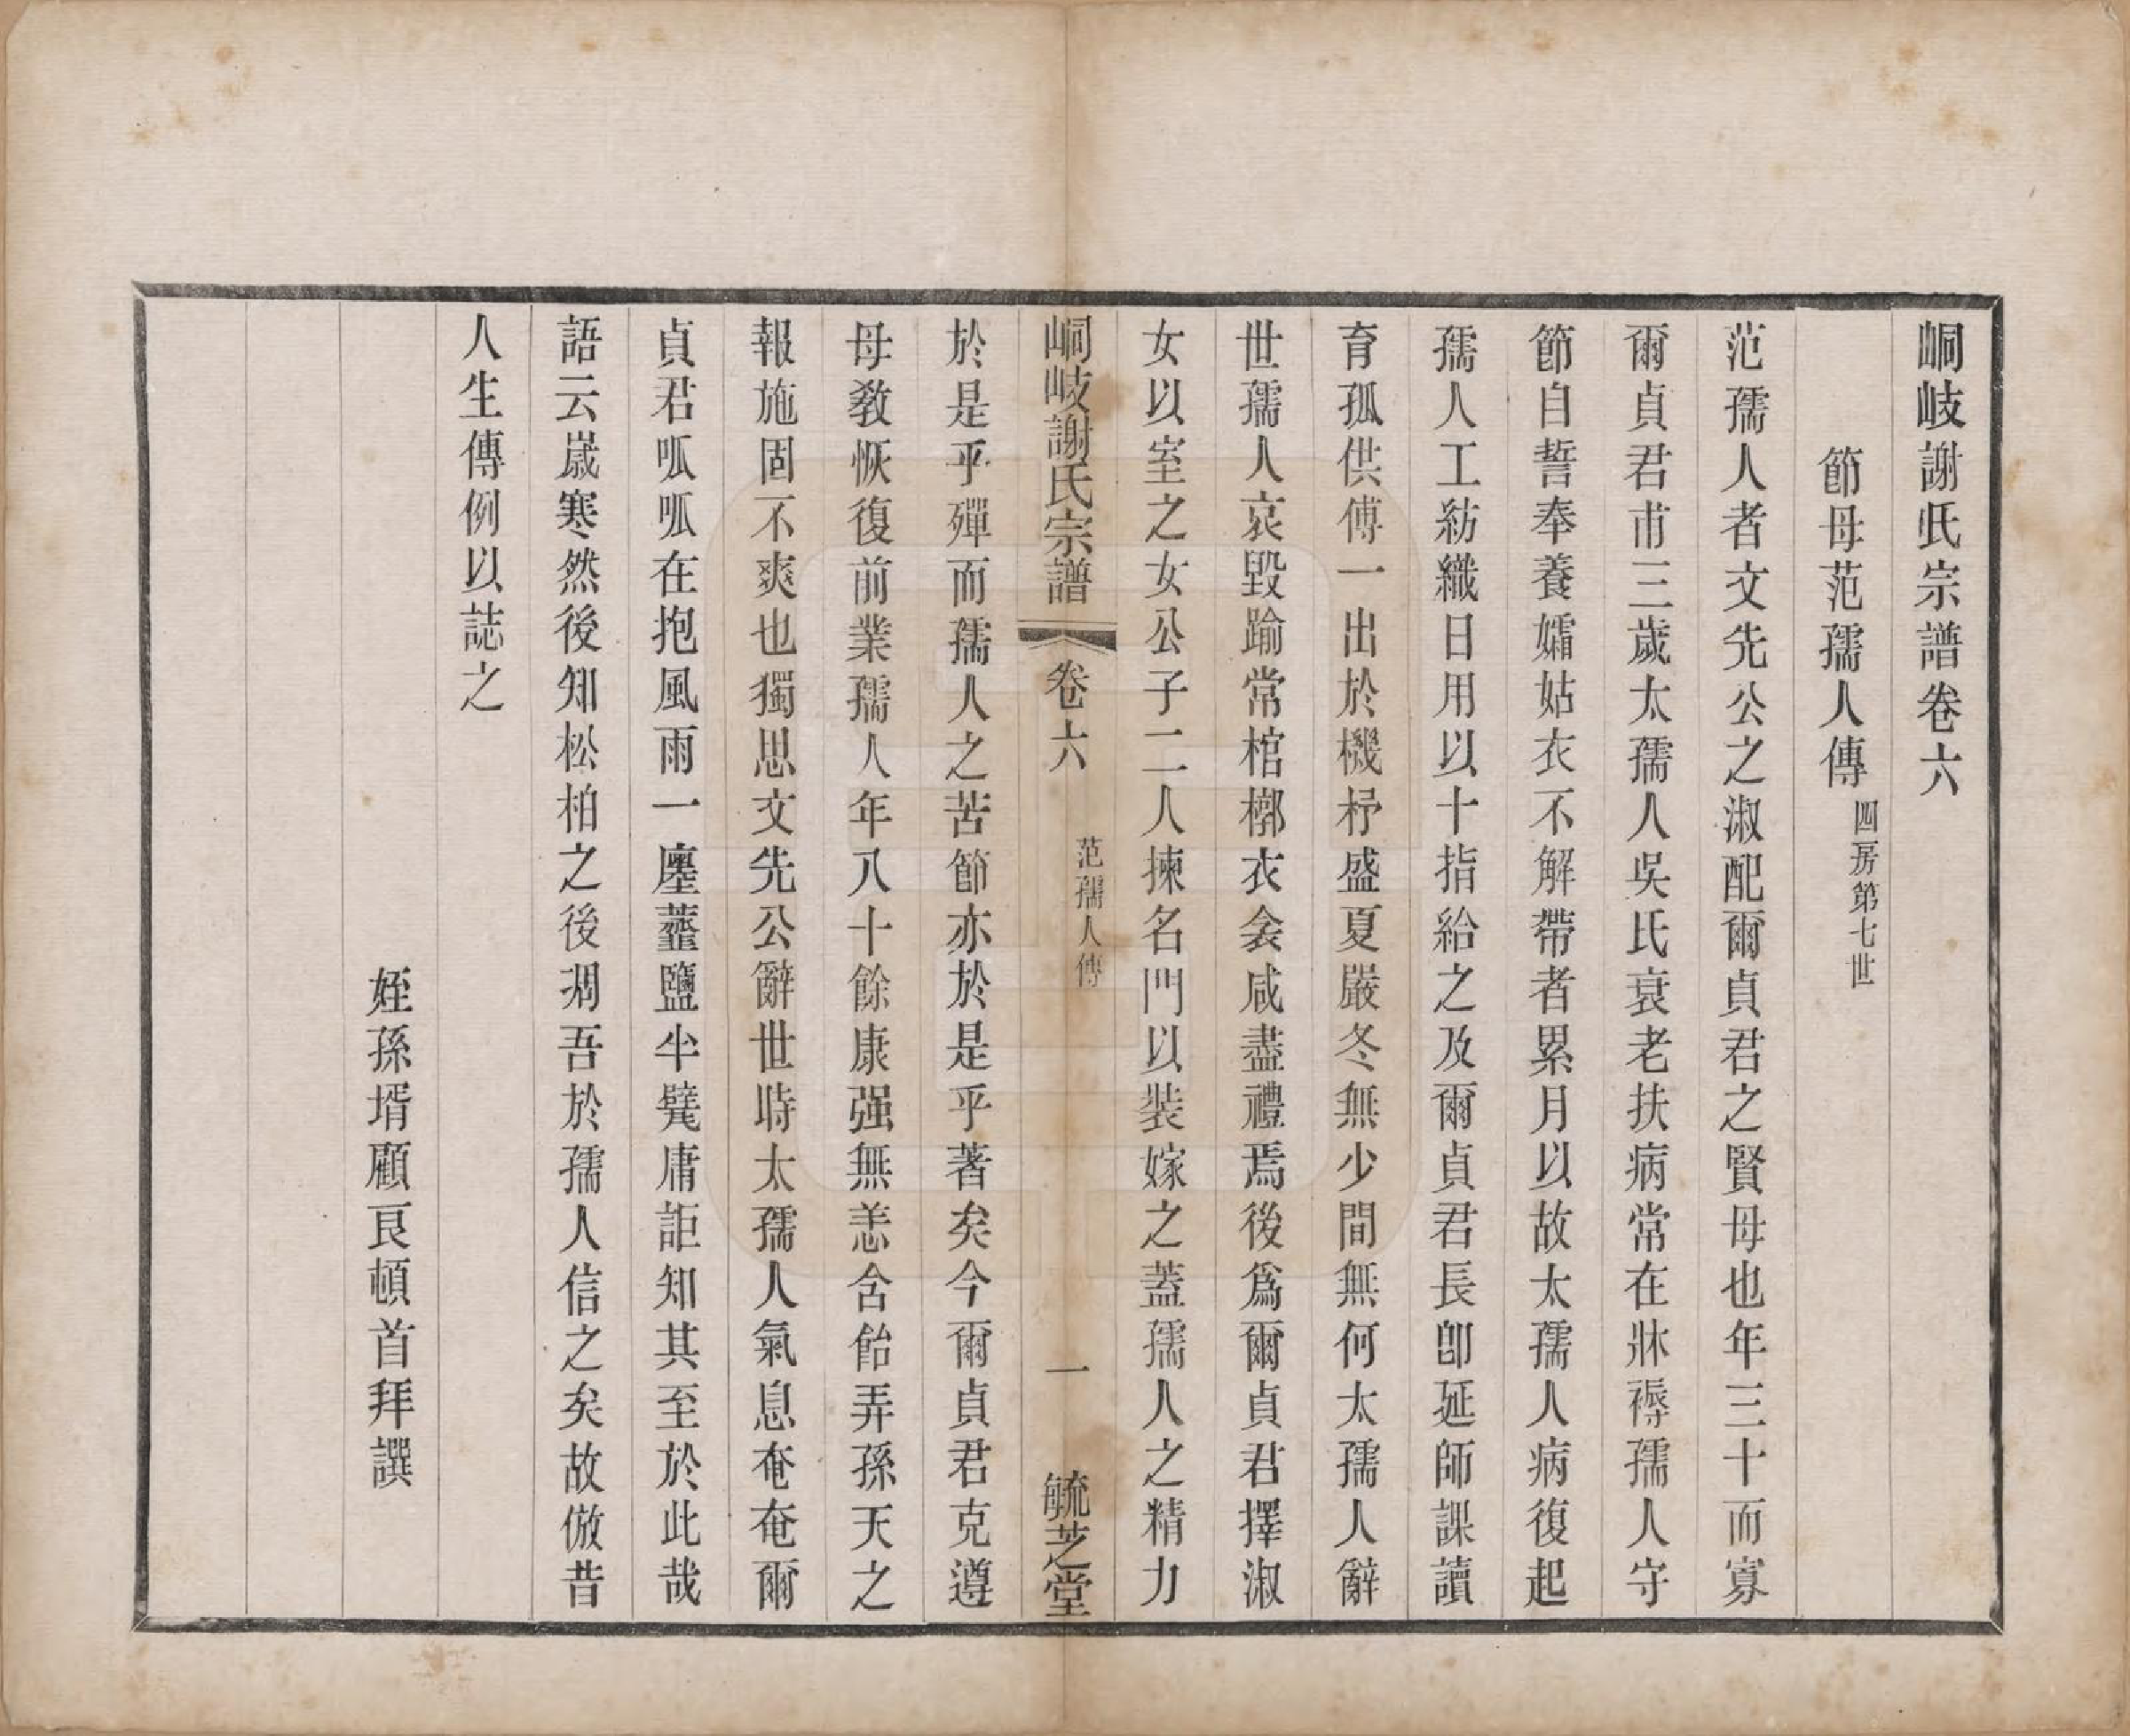 峒岐謝氏宗譜卷六
節母范孺人傳四房第七世
范孺人者文先公之淑配爾貞君之賢母也年三十而寡
爾貞君甫三歲太孺人吳氏衰老扶病常在牀褥孺人守
節自誓奉養孀姑衣不解帶者累月以故太孺人病復起
孺人工紡織日用以十指給之及爾貞君長卽延師課讀
育孤供傅一出於機杼盛夏嚴冬無少間無何太孺人辭
世孺人哀毀踰常棺槨衣衾咸盡禮焉後爲爾貞君擇淑
女以室之女公子二人揀名門以裝嫁之蓋孺人之精力
峒岐謝氏宗譜 卷六 范孺人傳 一 毓芝堂
於是乎殫而孺人之苦節亦於是乎著矣今爾貞君克遵
母敎恢復前業孺人年八十餘康强無恙含飴弄孫天之
報施固不爽也獨思文先公辭世時太孺人氣息奄奄爾
貞君呱呱在抱風雨一廛虀鹽半甓庸詎知其至於此哉
語云歲寒然後知松柏之後凋吾於孺人信之矣故倣昔
人生傳例以誌之
姪孫壻顧艮頓首拜譔